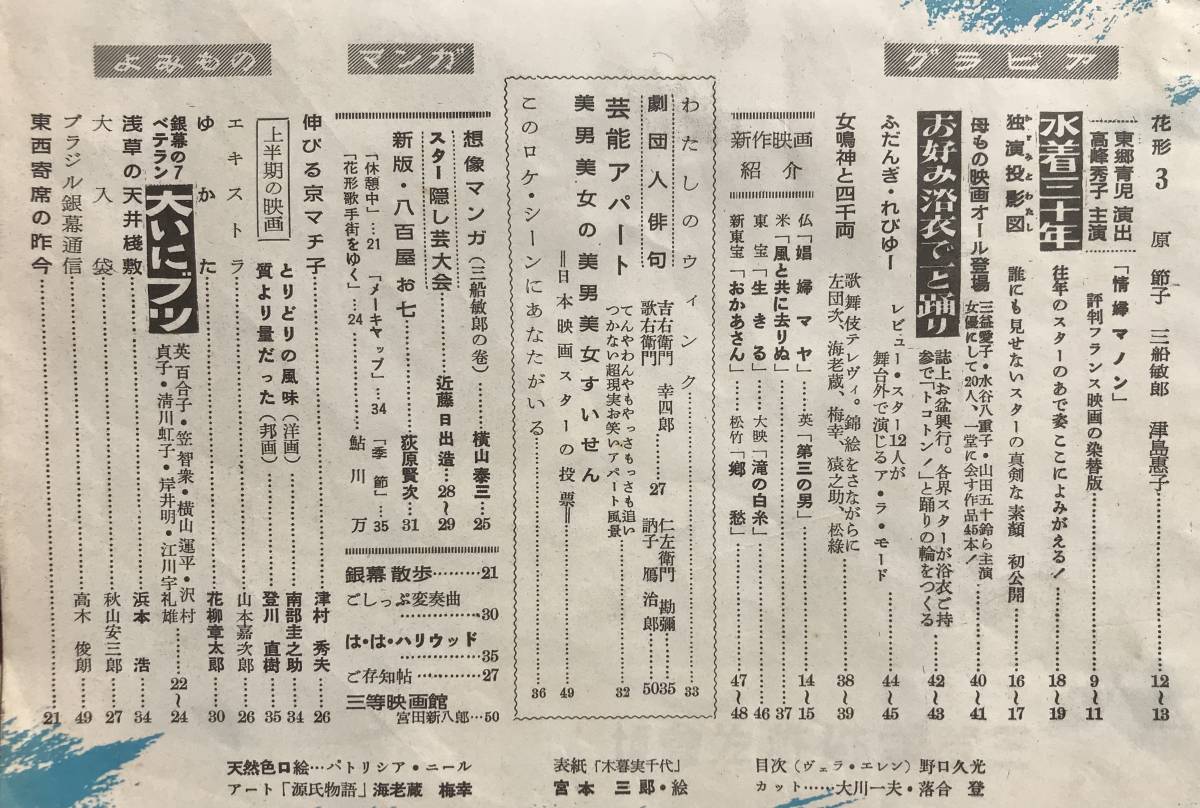 グラビア
花形3 原 節子 三船敏郎 津島惠子……12〜13
東郷青児 演出
高峰秀子 主演
「情婦マノン」
評判フランス映画の染替版……9〜11
水着三十年
往年のスターのあで姿ここによみがえる!……18〜19
独演投影図
誰にも見せないスターの真剣な素顔 初公開……16〜17
母もの映画オール登場
三益愛子・水谷八重子・山田五十鈴ら主演
女優にして20人、一堂に会す作品45本!……40〜41
お好み浴衣で一と踊り
誌上お盆興行。各界スターが浴衣ご持
参で「トコトン!」と踊りの輪をつくる……42〜43
ふだんぎ・れびゆー
レビュー・スター12人が
舞台外で演じるア・ラ・モード……44〜45
女鳴神と四千両
歌舞伎テレヴィ。錦絵をさながらに
左団次、海老蔵、梅幸、猿之助、松緑……38〜39
新作映画
紹介
仏「娼婦マヤ」 英「第三の男」……14〜15
米「風と共に去りぬ」……37
東宝「生きる」 大映「滝の白糸」……46
新東宝「おかあさん」 松竹「郷愁」……47〜48
わたしのウィンク……33
劇団人俳句
吉右衛門 幸四郎……27 仁左衛門 勘彌……35
歌右衛門 訥子 鴈治郎……50
芸能アパート
てんやわんやもやっさもっさも追い
つかない超現実お笑いアパート風景……32
美男美女の美男美女すいせん
＝日本映画スターの投票＝……49
このロケ・シーンにあなたがいる……36
マンガ
想像マンガ(三船敏郎の巻)……横山泰三……25
スター隠し芸大会……近藤日出造……28〜29
新版・八百屋お七……荻原賢次……31
「休憩中」…21 「メーキャップ」…34 「季節」…35
「花形歌手街をゆく」…24 鮎川 万
銀幕散歩………21
ごしっぷ変奏曲
………30
は・は・ハリウッド
………35
ご存知帖………27
三等映画館
宮田新八郎…50
よみもの
伸びる京マチ子……津村秀夫……26
上半期の映画
とりどりの風味(洋画)……南部圭之助……34
質より量だった(邦画)……登川直樹……35
エキストラ……山本嘉次郎……26
ゆかた……花柳章太郎……30
銀幕の7
ベテラン
大いにブツ
英百合子・笠智衆・横山運平・沢村
貞子・清川虹子・岸井明・江川宇礼雄……22〜24
浅草の天井桟敷……浜本 浩……34
大入袋……秋山安三郎……27
ブラジル銀幕通信……高木俊朗……49
東西寄席の昨今……21
目次(ヴェラ・エレン)野口久光
カット……大川一夫・落合 登
表紙「木暮実千代」
宮本三郎・絵
天然色口絵…パトリシア・ニール
アート「源氏物語」海老蔵 梅幸